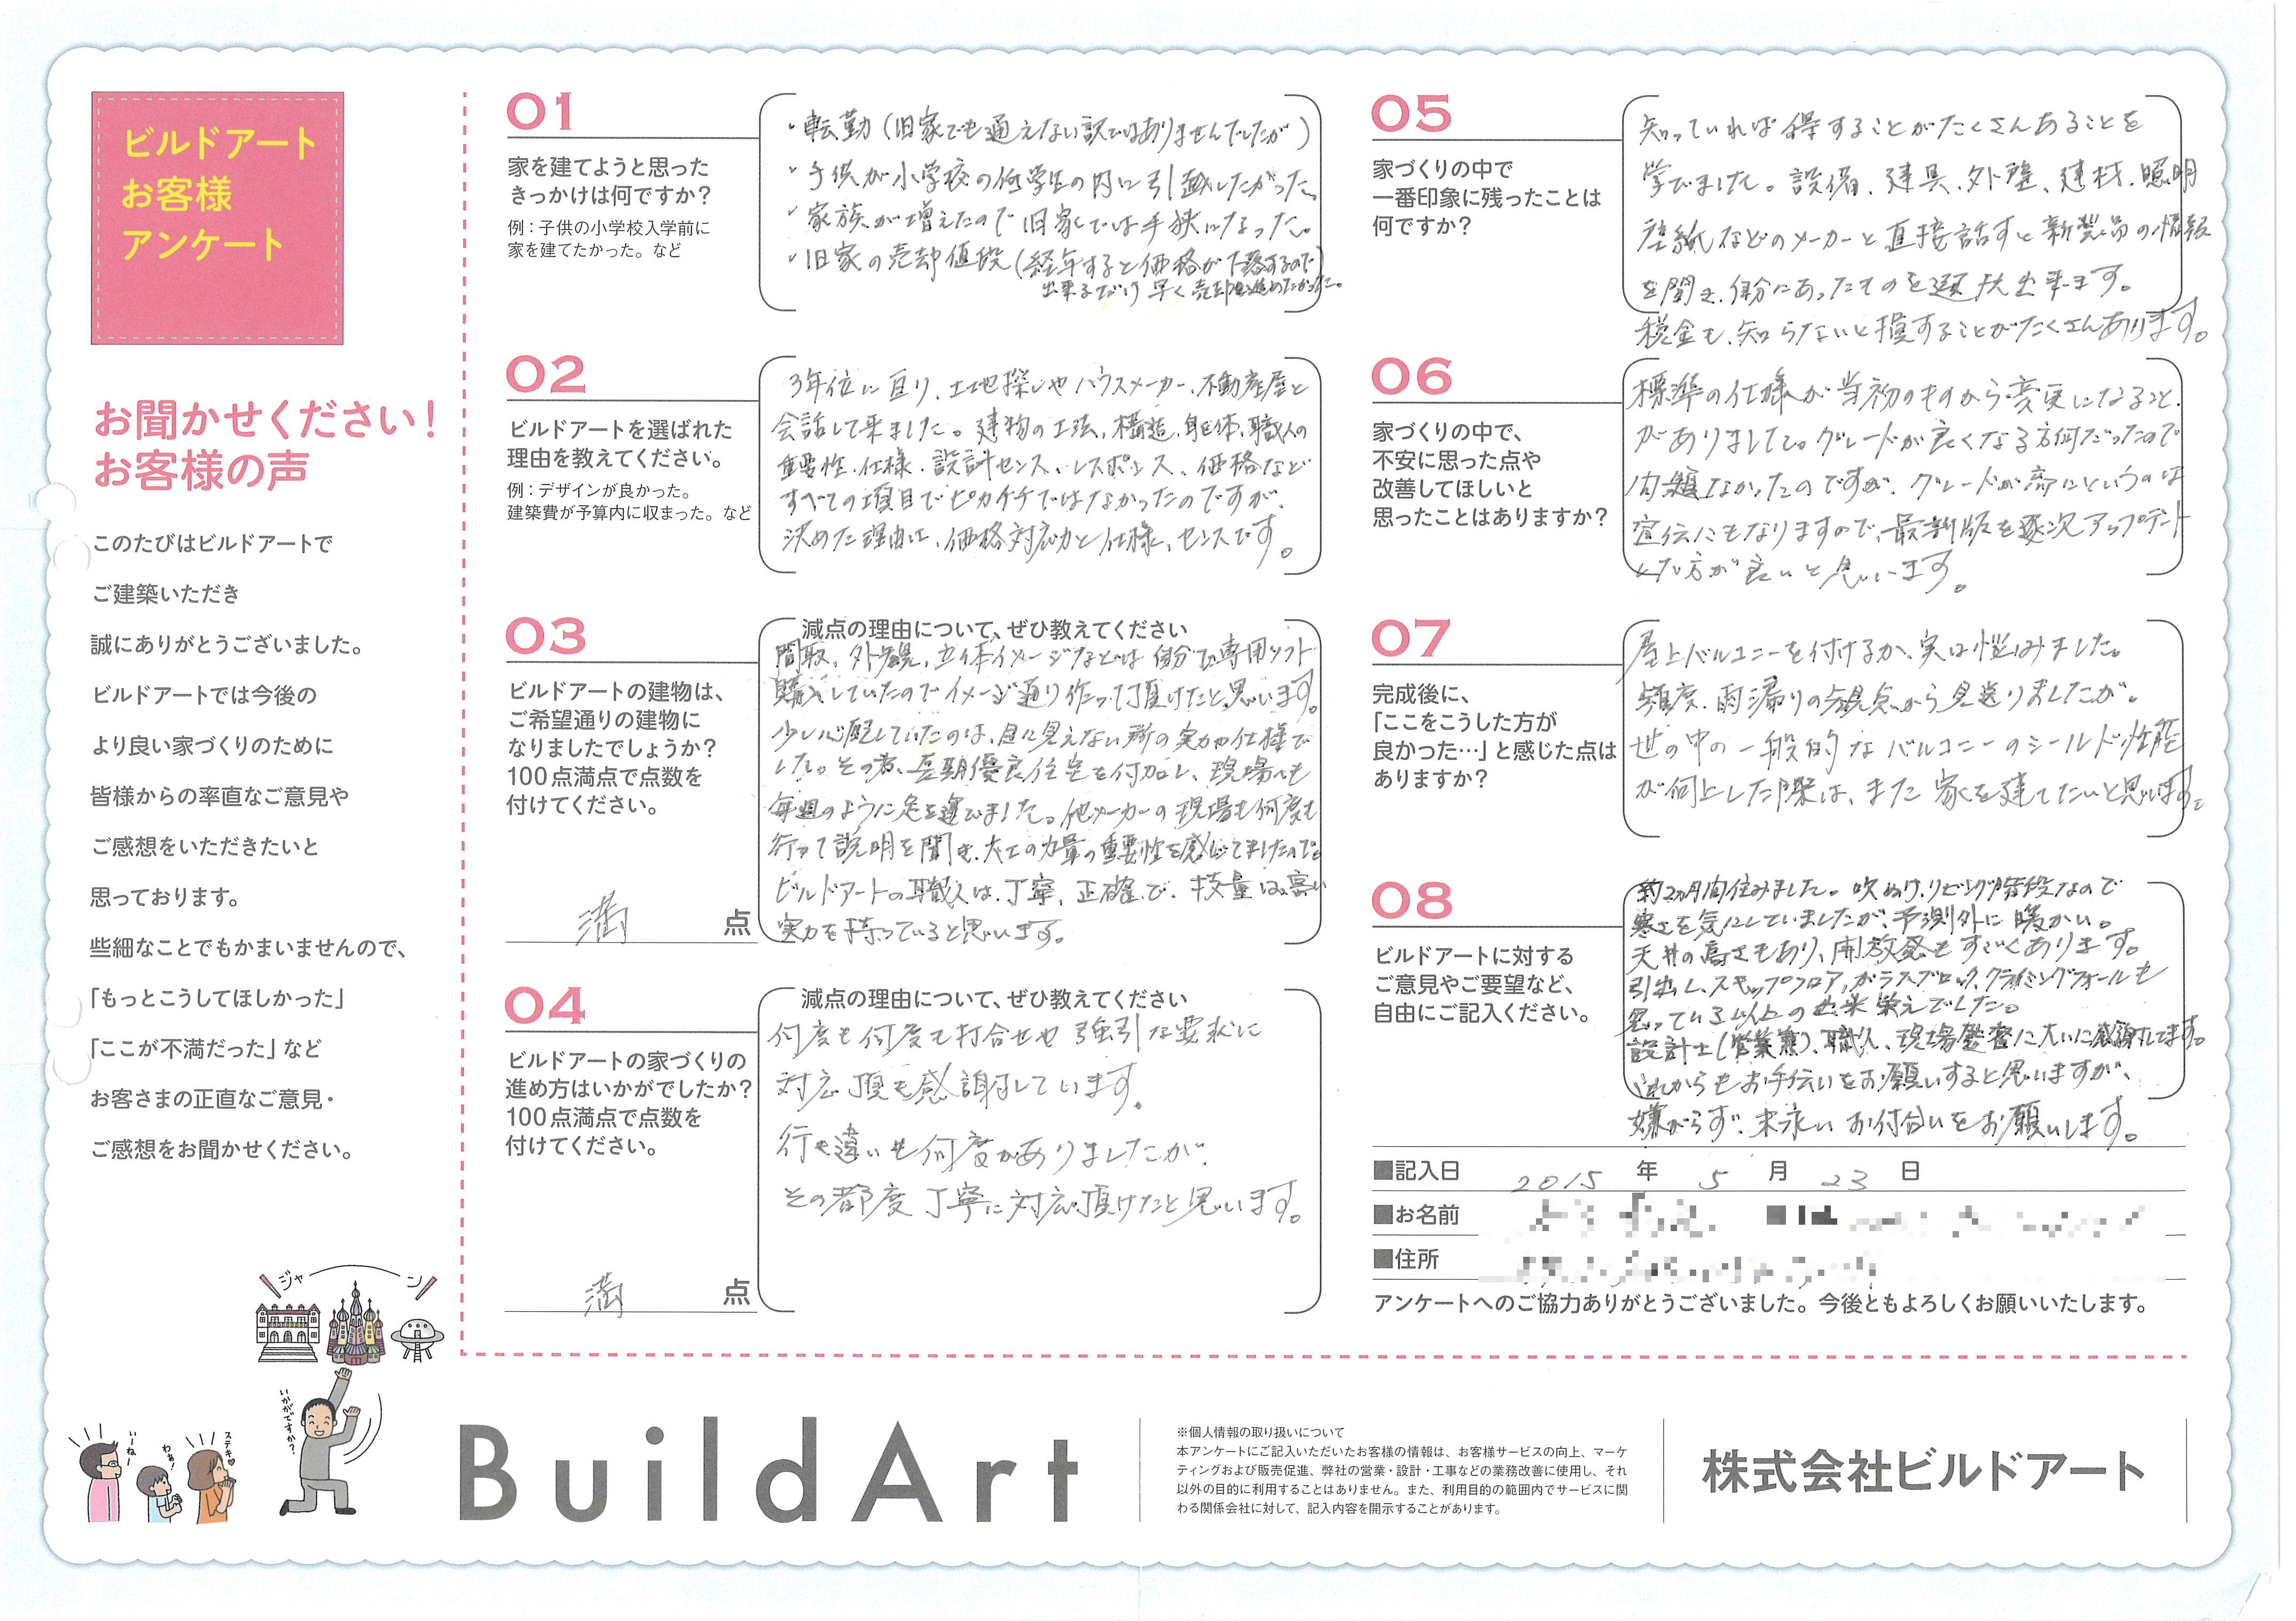 ビルドアート
お客様
アンケート
お聞かせください！
お客様の声
このたびはビルドアートで
ご建築いただき
誠にありがとうございました。
ビルドアートでは今後の
より良い家づくりのために
皆様からの率直なご意見や
ご感想をいただきたいと
思っております。
些細なことでもかまいませんので、
「もっとこうしてほしかった」
「ここが不満だった」など
お客さまの正直なご意見・
ご感想をお聞かせください。
ジャーン
いかがですか?
いーねー
わぁ!
ステキ
01
家を建てようと思った
きっかけは何ですか?
例：子供の小学校入学前に
家を建てたかった。など
・転勤(旧家でも通えない訳ではありませんでしたが)
・子供が小学校の低学生の内に引越したがった。
・家族が増えたので旧家では手狭になった。
・旧家の売却値段(経年すると価格が下落するので)
出来るだけ早く売却を進めたかった。
02
ビルドアートを選ばれた
理由を教えてください。
例：デザインが良かった。
建築費が予算内に収まった。など
3年位に亘り、土地探しやハウスメーカー、不動産屋と
会話して来ました。建物の工法、構造、躯体、職人の
重要性、仕様、設計センス、レスポンス、価格など
すべての項目でピカイチではなかったのですが、
決めた理由は、価格対応力と仕様、センスです。
03
ビルドアートの建物は、
ご希望通りの建物に
なりましたでしょうか?
100点満点で点数を
付けてください。
満 点
減点の理由について、ぜひ教えてください
間取、外観、立体イメージなどは自分で専用ソフト
購入していたのでイメージ通り作って頂けたと思います。
少し心配していたのは、目に見えない所の実力や仕様で
した。その為、長期優良住宅を付加し、現場へも
毎週のように足を運びました。他メーカーの現場も何度も
行って説明を聞き、大工の力量の重要性を感じてましたので。
ビルドアートの職人は、丁寧、正確で、技量は高い
実力を持っていると思います。
04
ビルドアートの家づくりの
進め方はいかがでしたか?
100点満点で点数を
付けてください。
満 点
減点の理由について、ぜひ教えてください
何度も何度も打合せや強引な要求に
対応頂き感謝しています。
行き違いも何度かありましたが、
その都度丁寧に対応頂けたと思います。
05
家づくりの中で
一番印象に残ったことは
何ですか?
知っていれば得することがたくさんあることを
学びました。設備、建具、外壁、建材、照明
壁紙などのメーカーと直接話すと新製品の情報
を聞き、自分にあったものを選択出来ます。
税金も、知らないと損することがたくさんあります。
06
家づくりの中で、
不安に思った点や
改善してほしいと
思ったことはありますか?
標準の仕様が当初のものから変更になること
がありました。グレードが良くなる方向だったので
問題なかったのですが、グレードが高いというのは
宣伝にもなりますので、最新版を逐次アップデート
した方が良いと思います。
07
完成後に、
「ここをこうした方が
良かった…」と感じた点は
ありますか?
屋上バルコニーを付けるか、実は悩みました。
頻度、雨漏りの観点から見送りましたが、
世の中の一般的なバルコニーのシールド性能
が向上した際は、また家を建てたいと思います。
08
ビルドアートに対する
ご意見やご要望など、
自由にご記入ください。
約2ヵ月間住みました。吹ぬけ、リビング階段なので
寒さを気にしていましたが、予測外に暖かい。
天井の高さもあり、開放感もすごくあります。
引出し、スキップフロア、ガラスブロック、クライミングウォールも
思っている以上の出来栄えでした。
設計士(営業兼)、職人、現場監督に大いに感謝してます。
これからもお手伝いをお願いすると思いますが、
嫌がらず、末永いお付合いをお願いします。
■記入日 2015 年 5 月 23 日
■お名前
■住所
アンケートへのご協力ありがとうございました。今後ともよろしくお願いいたします。
BuildArt
※個人情報の取り扱いについて
本アンケートにご記入いただいたお客様の情報は、お客様サービスの向上、マーケ
ティングおよび販売促進、弊社の営業・設計・工事などの業務改善に使用し、それ
以外の目的に利用することはありません。また、利用目的の範囲内でサービスに関
わる関係会社に対して、記入内容を開示することがあります。
株式会社ビルドアート